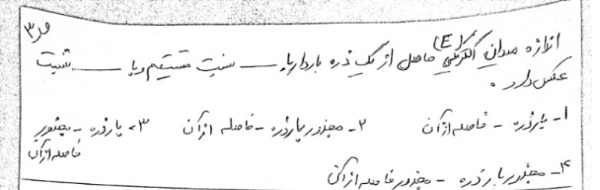 ص ۳
اندازه میدان الکتریکی (E) حاصل از یک ذره باردار با ـــــ نسبت مستقیم و با ـــــ نسبت
عکس دارد .
۱- بار ذره - فاصله از آن ۲- مجذور بار ذره - فاصله از آن ۳- بار ذره - مجذور
فاصله از آن
۴- مجذور بار ذره - مجذور فاصله از آن